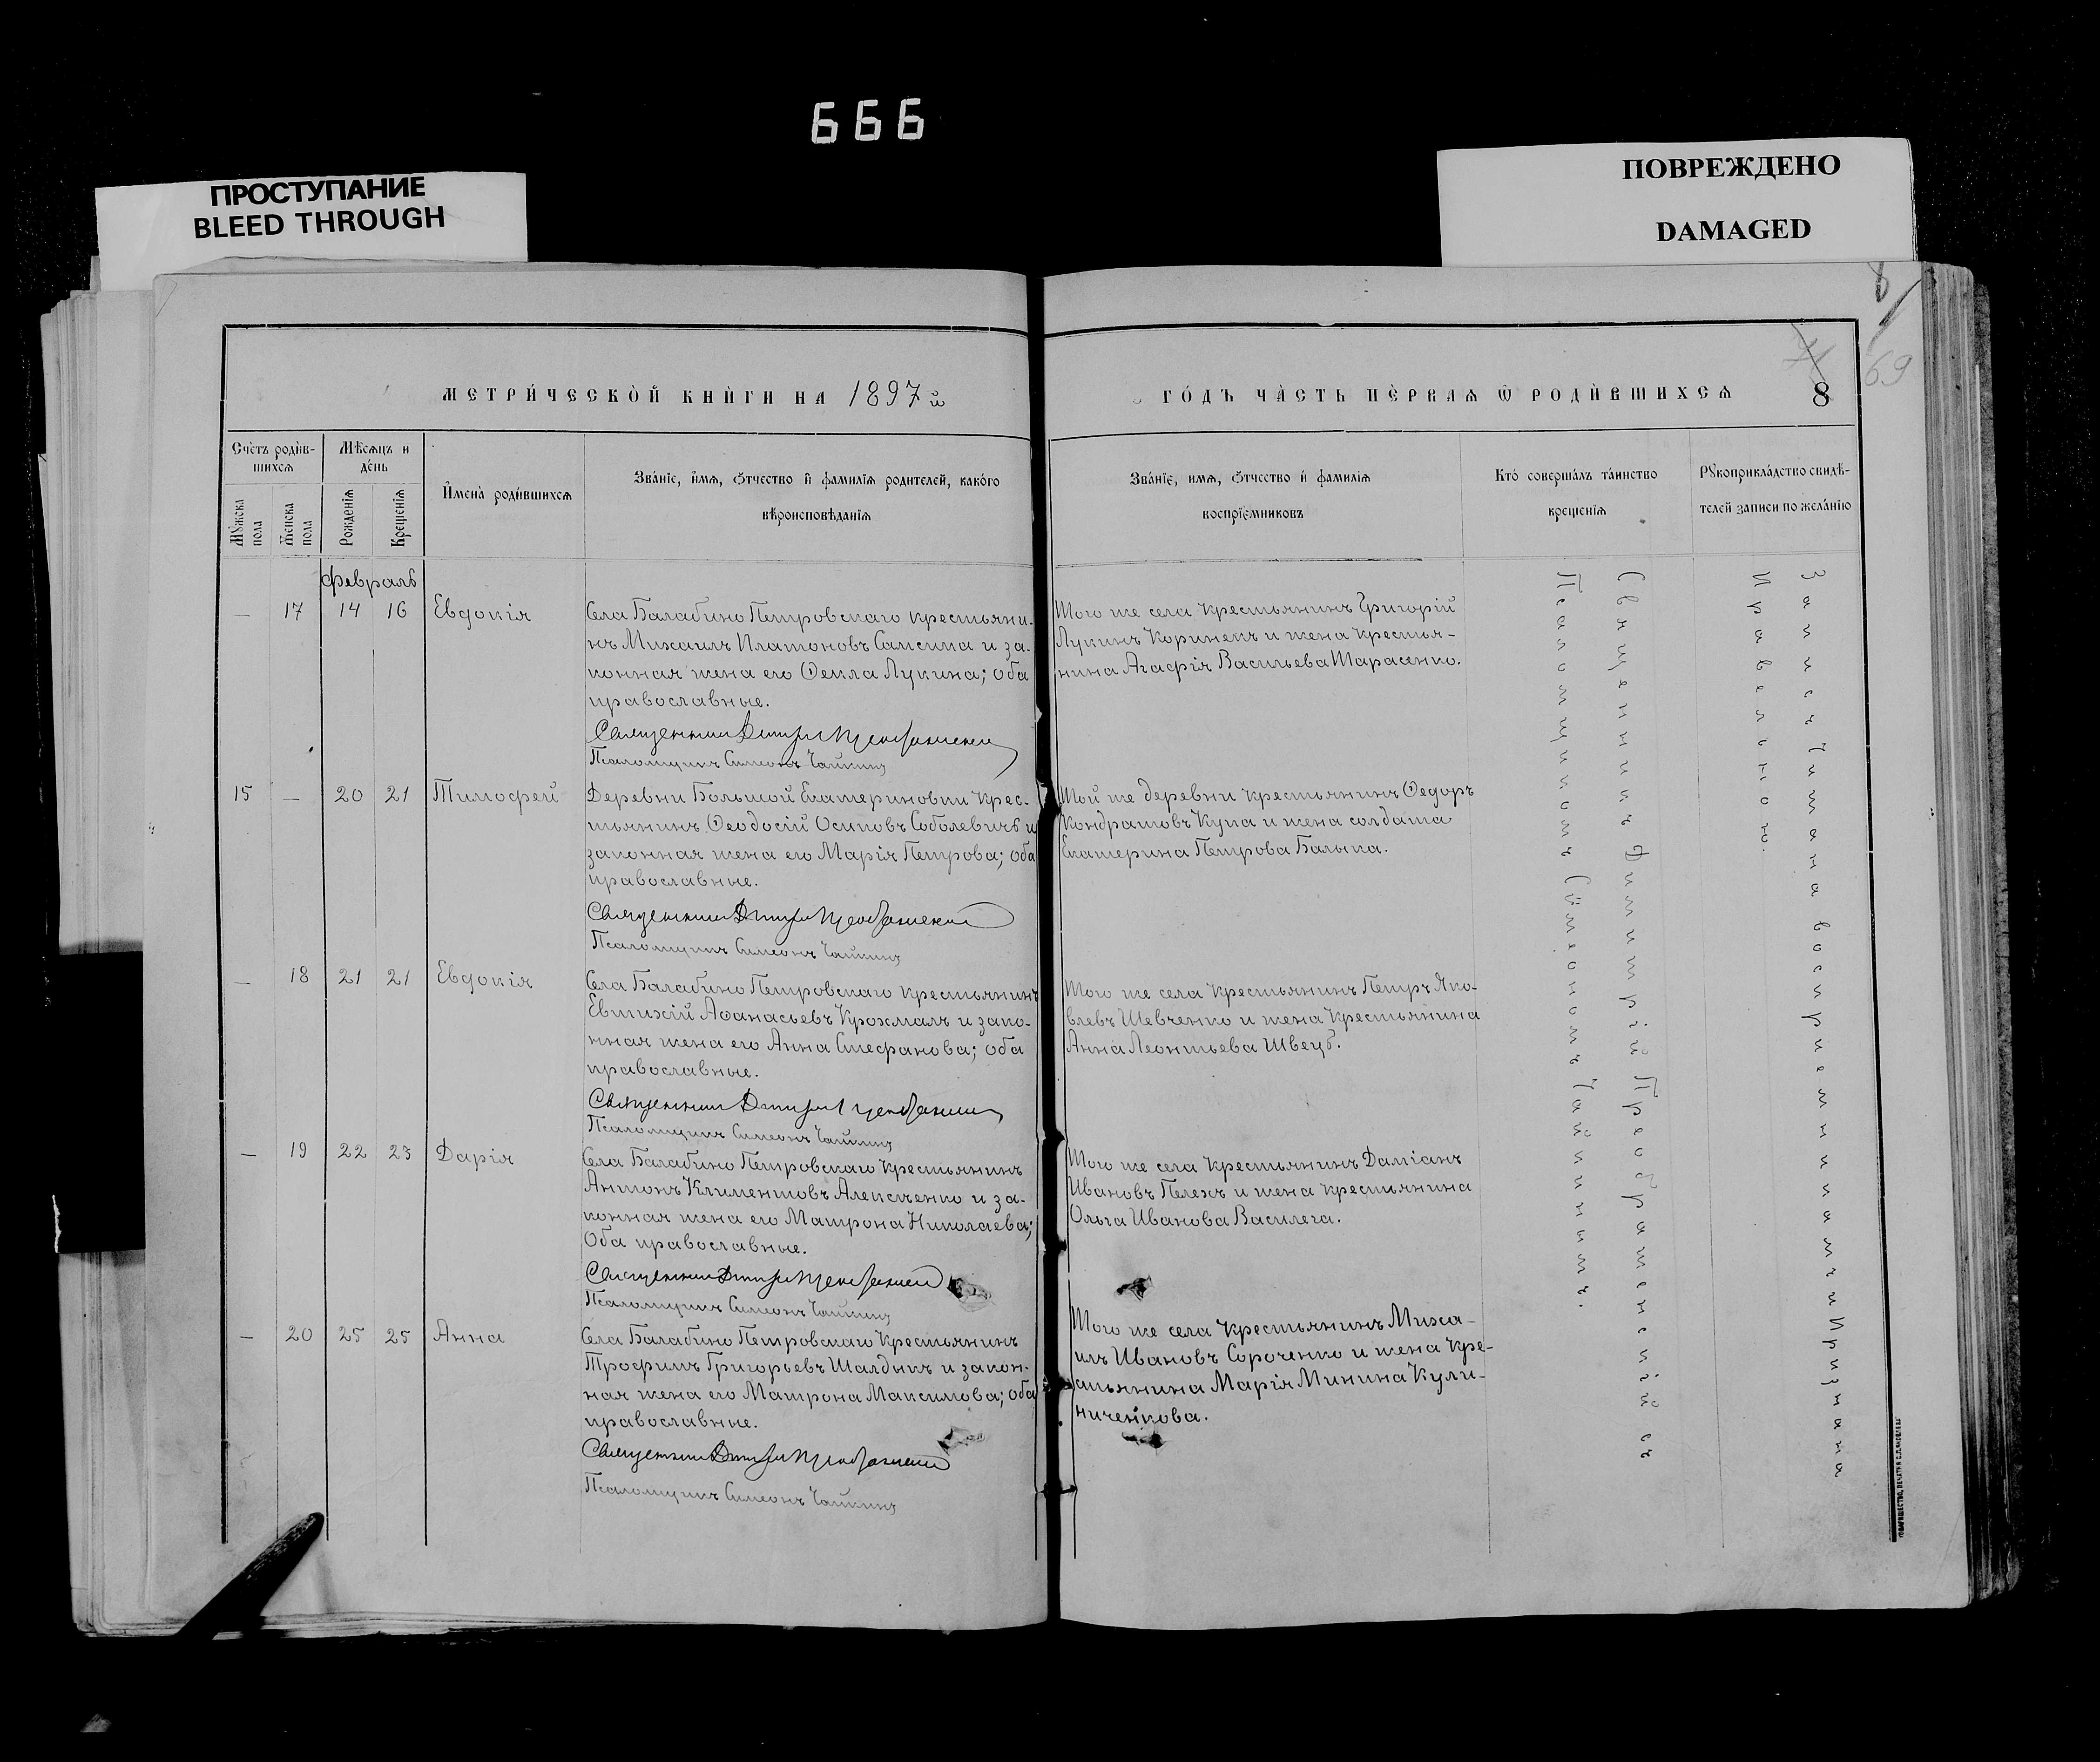 666
ПРОСТУПАНИЕ
BLEED THROUGH
ПОВРЕЖДЕНО
DAMAGED
69
8
МЕТРИ́ЧЕСКОЙ КНИ́ГИ НА 1897й
ГО́ДЪ ЧА́СТЬ ПЕ́РВАѦ Ѿ РОДИ́ВШИХСѦ
Сче́тъ роди́в-
шихсѧ
Мѣсѧцъ и
де́нь
Мꙋжска
пола
Женска
пола
Рожденїѧ
Крещенїѧ
Имена̀ роди́вшихсѧ
Зва́нїе, и́мѧ, ѻтчество и҆ фамилїѧ родителей, како́го
вѣроисповѣданїѧ
Зва́нїе, имѧ, ѻтчество и҆ фамилїѧ
воспрїемниковъ
Кто̀ соверша́лъ та́инство
крещенїѧ
Рꙋкоприкла́дство свидѣ-
телей записи по жела́нїю
Февраль
— 17 14 16 Евдокія
Села Балабино Петровскаго крестьяни-
нъ Михаилъ Платоновъ и за-
конная жена его Ѳекла Лукина; оба
православные.
Священникъ Димитрій Преображенскій
Псаломщикъ Симеонъ Чайкинъ
Того же села крестьянинъ Григорій
Лукинъ Коринекъ и жена крестья-
нина Агафія Васильева Тарасенко.
15 — 20 21 Тимофей
Деревни Большой Екатериновки крес-
тьянинъ Ѳеодосій Осиповъ Соболевичъ и
законная жена его Марія Петрова; оба
православные.
Священникъ Димитрій Преображенскій
Псаломщикъ Симеонъ Чайкинъ
Той же деревни крестьянинъ Ѳедоръ
Кондратовъ Купа и жена солдата
Екатерина Петрова Балыка.
— 18 21 21 Евдокія
Села Балабино Петровскаго крестьянинъ
Евтихій Аѳанасьевъ Крохмаль и зако-
нная жена его Анна Стефанова; оба
православные.
Священникъ Димитрій Преображенскій
Псаломщикъ Симеонъ Чайкинъ
Того же села крестьянинъ Петръ Яко-
влевъ Шевченко и жена крестьянина
Анна Леонтьева Швецъ.
— 19 22 23 Дарія
Села Балабино Петровскаго крестьянинъ
Антонъ Климентовъ Алексѣенко и за-
конная жена его Матрона Николаева;
Оба православные.
Священникъ Димитрій Преображенскій
Псаломщикъ Симеонъ Чайкинъ
Того же села крестьянинъ Даміанъ
Ивановъ Пелехъ и жена крестьянина
Ольга Иванова Василега.
— 20 25 25 Анна
Села Балабино Петровскаго крестьянинъ
Трофимъ Григорьевъ Шалдыкъ и закон-
ная жена его Матрона Максимова; оба
православные.
Священникъ Димитрій Преображенскій
Псаломщикъ Симеонъ Чайкинъ
Того же села крестьянинъ Миха-
илъ Ивановъ Сороченко и жена кре-
стьянина Марія Минина Кули-
ниченкова.
Священникъ Димитрій Преображенскій съ
Псаломщикомъ Симеономъ Чайкинымъ.
Запись читана воспріемникамъ и признана
правильною.